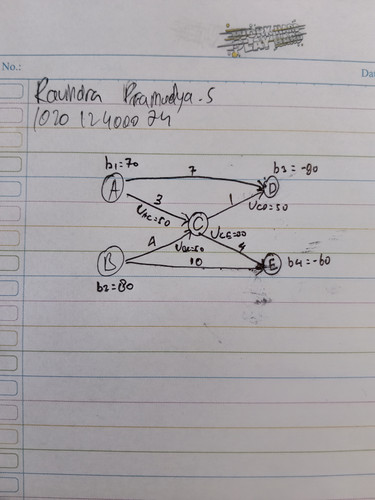 No.:
Ravindra Pramudya.S
1020 124000 74
b1=70
7
b3=-90
A
D
3
1
UAC=50
UCD=50
C
4
UBC=50
9
B
10
E
b4=-60
b2=80